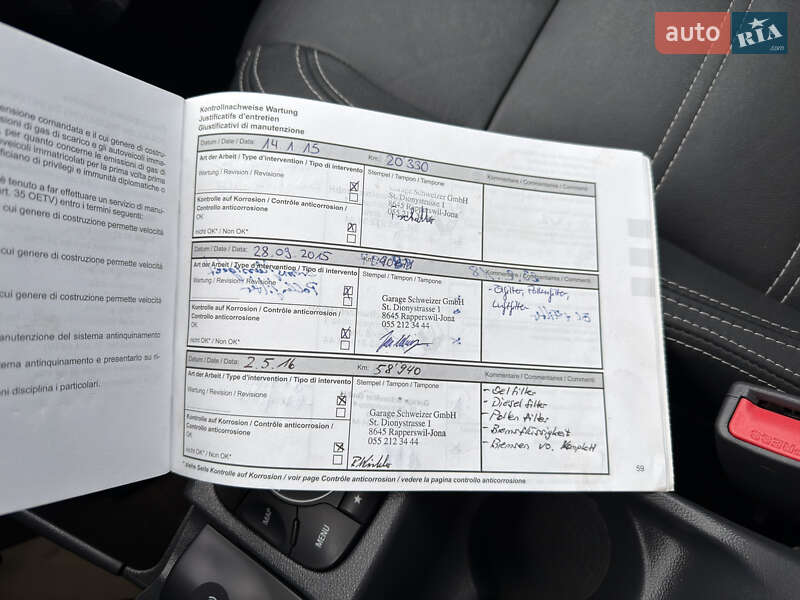 auto RIA.com
ensione comandata e il cui genere di costru-
ssioni di gas di scarico e gli autoveicoli imma-
per quanto concerne le emissioni di gas di
veicoli immatricolati per la prima volta prima
ficiano di privilegi e immunità diplomatiche o
è tenuto a far effettuare un servizio di manu-
rt. 35 OETV) entro i termini seguenti:
cui genere di costruzione permette velocità
cui genere di costruzione permette velocità
cui genere di costruzione permette velocità
manutenzione del sistema antinquinamento
stema antinquinamento e presentarlo su ri-
ni disciplina i particolari.
Kontrollnachweise Wartung
Justificatifs d'entretien
Giustificativi di manutenzione
Datum / Date / Data: 14 1 15 Km: 20 330
Art der Arbeit / Type d'intervention / Tipo di intervento
Stempel / Timbre / Tampone
Kommentare / Commentaires / Commenti
Wartung / Revision / Revisione
Kontrolle auf Korrosion / Contrôle anticorrosion /
Controllo anticorrosione
OK
nicht OK* / Non OK*
Garage Schweizer GmbH
St. Dionystrasse 1
8645 Rapperswil-Jona
055 212
Datum / Date / Data: 28.09.2015 Km:
Art der Arbeit / Type d'intervention / Tipo di intervento
Stempel / Timbre / Tampone
Kommentare / Commentaires / Commenti
Wartung / Revision / Revisione
Kontrolle auf Korrosion / Contrôle anticorrosion /
Controllo anticorrosione
OK
nicht OK* / Non OK*
Garage Schweizer GmbH
St. Dionystrasse 1
8645 Rapperswil-Jona
055 212 34 44
- Ölfilter, Pollenfilter,
Luftfilter
Datum / Date / Data: 2.5.16 Km: 58'940
Art der Arbeit / Type d'intervention / Tipo di intervento
Stempel / Timbre / Tampone
Kommentare / Commentaires / Commenti
Wartung / Revision / Revisione
Kontrolle auf Korrosion / Contrôle anticorrosion /
Controllo anticorrosione
OK
nicht OK* / Non OK*
Garage Schweizer GmbH
St. Dionystrasse 1
8645 Rapperswil-Jona
055 212 34 44
- Oelfilter
- Dieselfilter
- Pollenfilter
- Bremsflüssigkeit
- Bremsen vo. komplett
* siehe Seite Kontrolle auf Korrosion / voir page Contrôle anticorrosion / vedere la pagina controllo anticorrosione
59
MAP
MENU
PRESS